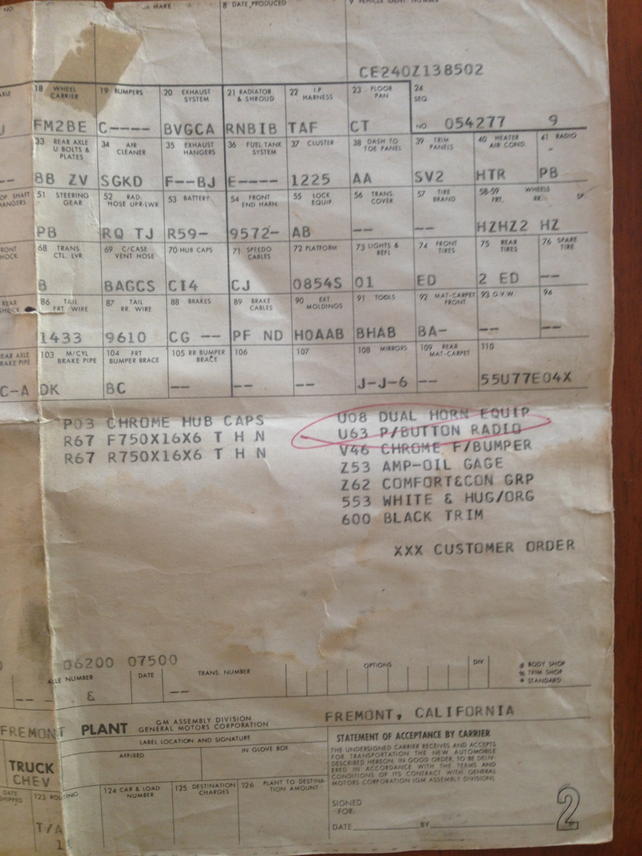 NO. MAKE 8 DATE PRODUCED 9 VEHICLE IDENT. NUMBER
CE240Z138502
18 WHEEL CARRIER 19 BUMPERS 20 EXHAUST SYSTEM 21 RADIATOR & SHROUD 22 I.P. HARNESS 23 FLOOR PAN 24 SEQ.
FM2BE C---- BVGCA RNBIB TAF CT NO 054277 9
33 REAR AXLE U BOLTS & PLATES 34 AIR CLEANER 35 EXHAUST HANGERS 36 FUEL TANK SYSTEM 37 CLUSTER 38 DASH TO TOE PANEL 39 TRIM PANELS 40 HEATER AIR COND. 41 RADIO
BB ZV SGKD F--BJ E---- 1225 AA SV2 HTR PB
51 STEERING GEAR 52 RAD. HOSE UPR-LWR 53 BATTERY 54 FRONT END HARN. 55 LOCK EQUIP. 56 TRANS. COVER 57 TIRE BRAND 58-59 FRT. WHEELS RR. SP.
PB RQ TJ R59- 9572- AB -- -- HZHZ2 HZ
68 TRANS CTL. LVR 69 C/CASE VENT HOSE 70 HUB CAPS 71 SPEEDO CABLES 72 PLATFORM 73 LIGHTS & REFL 74 FRONT TIRES 75 REAR TIRES 76 SPARE TIRE
B BAGCS CI4 CJ 0854S 01 ED 2 ED --
86 TAIL FRT. WIRE 87 TAIL RR. WIRE 88 BRAKES 89 BRAKE CABLES 90 EXT. MOLDINGS 91 TOOLS 92 MAT-CARPET FRONT 93 G.V.W. 94
1433 9610 CG -- PF ND HOAAB BHAB BA- -- --
REAR AXLE BRAKE PIPE 103 M/CYL BRAKE PIPE 104 FRT BUMPER BRACE 105 RR BUMPER BRACE 106 107 108 MIRRORS 109 REAR MAT-CARPET 110
C-A DK BC -- -- -- J-J-6 -- 55U77E04X
P03 CHROME HUB CAPS U08 DUAL HORN EQUIP
R67 F750X16X6 T H N U63 P/BUTTON RADIO
R67 R750X16X6 T H N V46 CHROME F/BUMPER
Z53 AMP-OIL GAGE
Z62 COMFORT&CON GRP
553 WHITE & HUG/ORG
600 BLACK TRIM
XXX CUSTOMER ORDER
06200 07500
AXLE NUMBER DATE TRANS. NUMBER OPTIONS DIV # BODY SHOP
* TRIM SHOP
* STANDARD
-- & --
FREMONT PLANT GM ASSEMBLY DIVISION GENERAL MOTORS CORPORATION FREMONT, CALIFORNIA
LABEL LOCATION AND SIGNATURE
AFFIXED IN GLOVE BOX
TRUCK
CHEV
STATEMENT OF ACCEPTANCE BY CARRIER
THE UNDERSIGNED CARRIER RECEIVES AND ACCEPTS
FOR TRANSPORTATION THE NEW AUTOMOBILE
DESCRIBED HEREIN, IN GOOD ORDER, TO BE DELIV-
ERED IN ACCORDANCE WITH THE TERMS AND
CONDITIONS OF ITS CONTRACT WITH GENERAL
MOTORS CORPORATION (GM ASSEMBLY DIVISION)
DATE SHIPPED 123 ROUTING 124 CAR & LOAD NUMBER 125 DESTINATION CHARGES 126 PLANT TO DESTINA- TION AMOUNT
T/A
SIGNED
FOR:
DATE BY
2